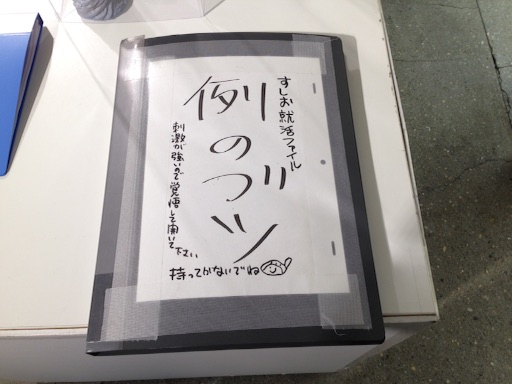 すしお就活ファイル
例のブツ
刺激が強いので覚悟して開いて下さい
持ってかないでね